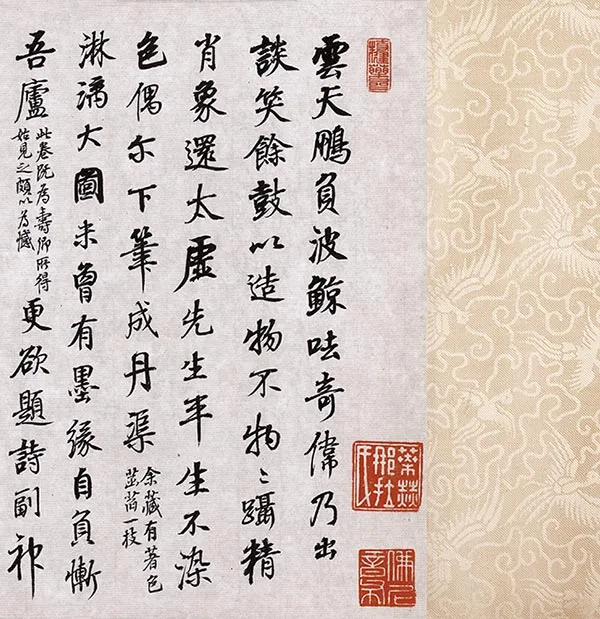 雲天鵬負波鯨呿奇偉乃出
談笑餘鼓以造物不物〻躡精
肖象還太虛先生平生不染
色偶尔下筆成丹渠
余藏有著色
菡萏一枝
淋漓大圖未曾有墨緣自負慚
吾廬
此卷既為壽卿所得
始見之頗以為憾
更欲題詩副
葉赫
那拉
氏